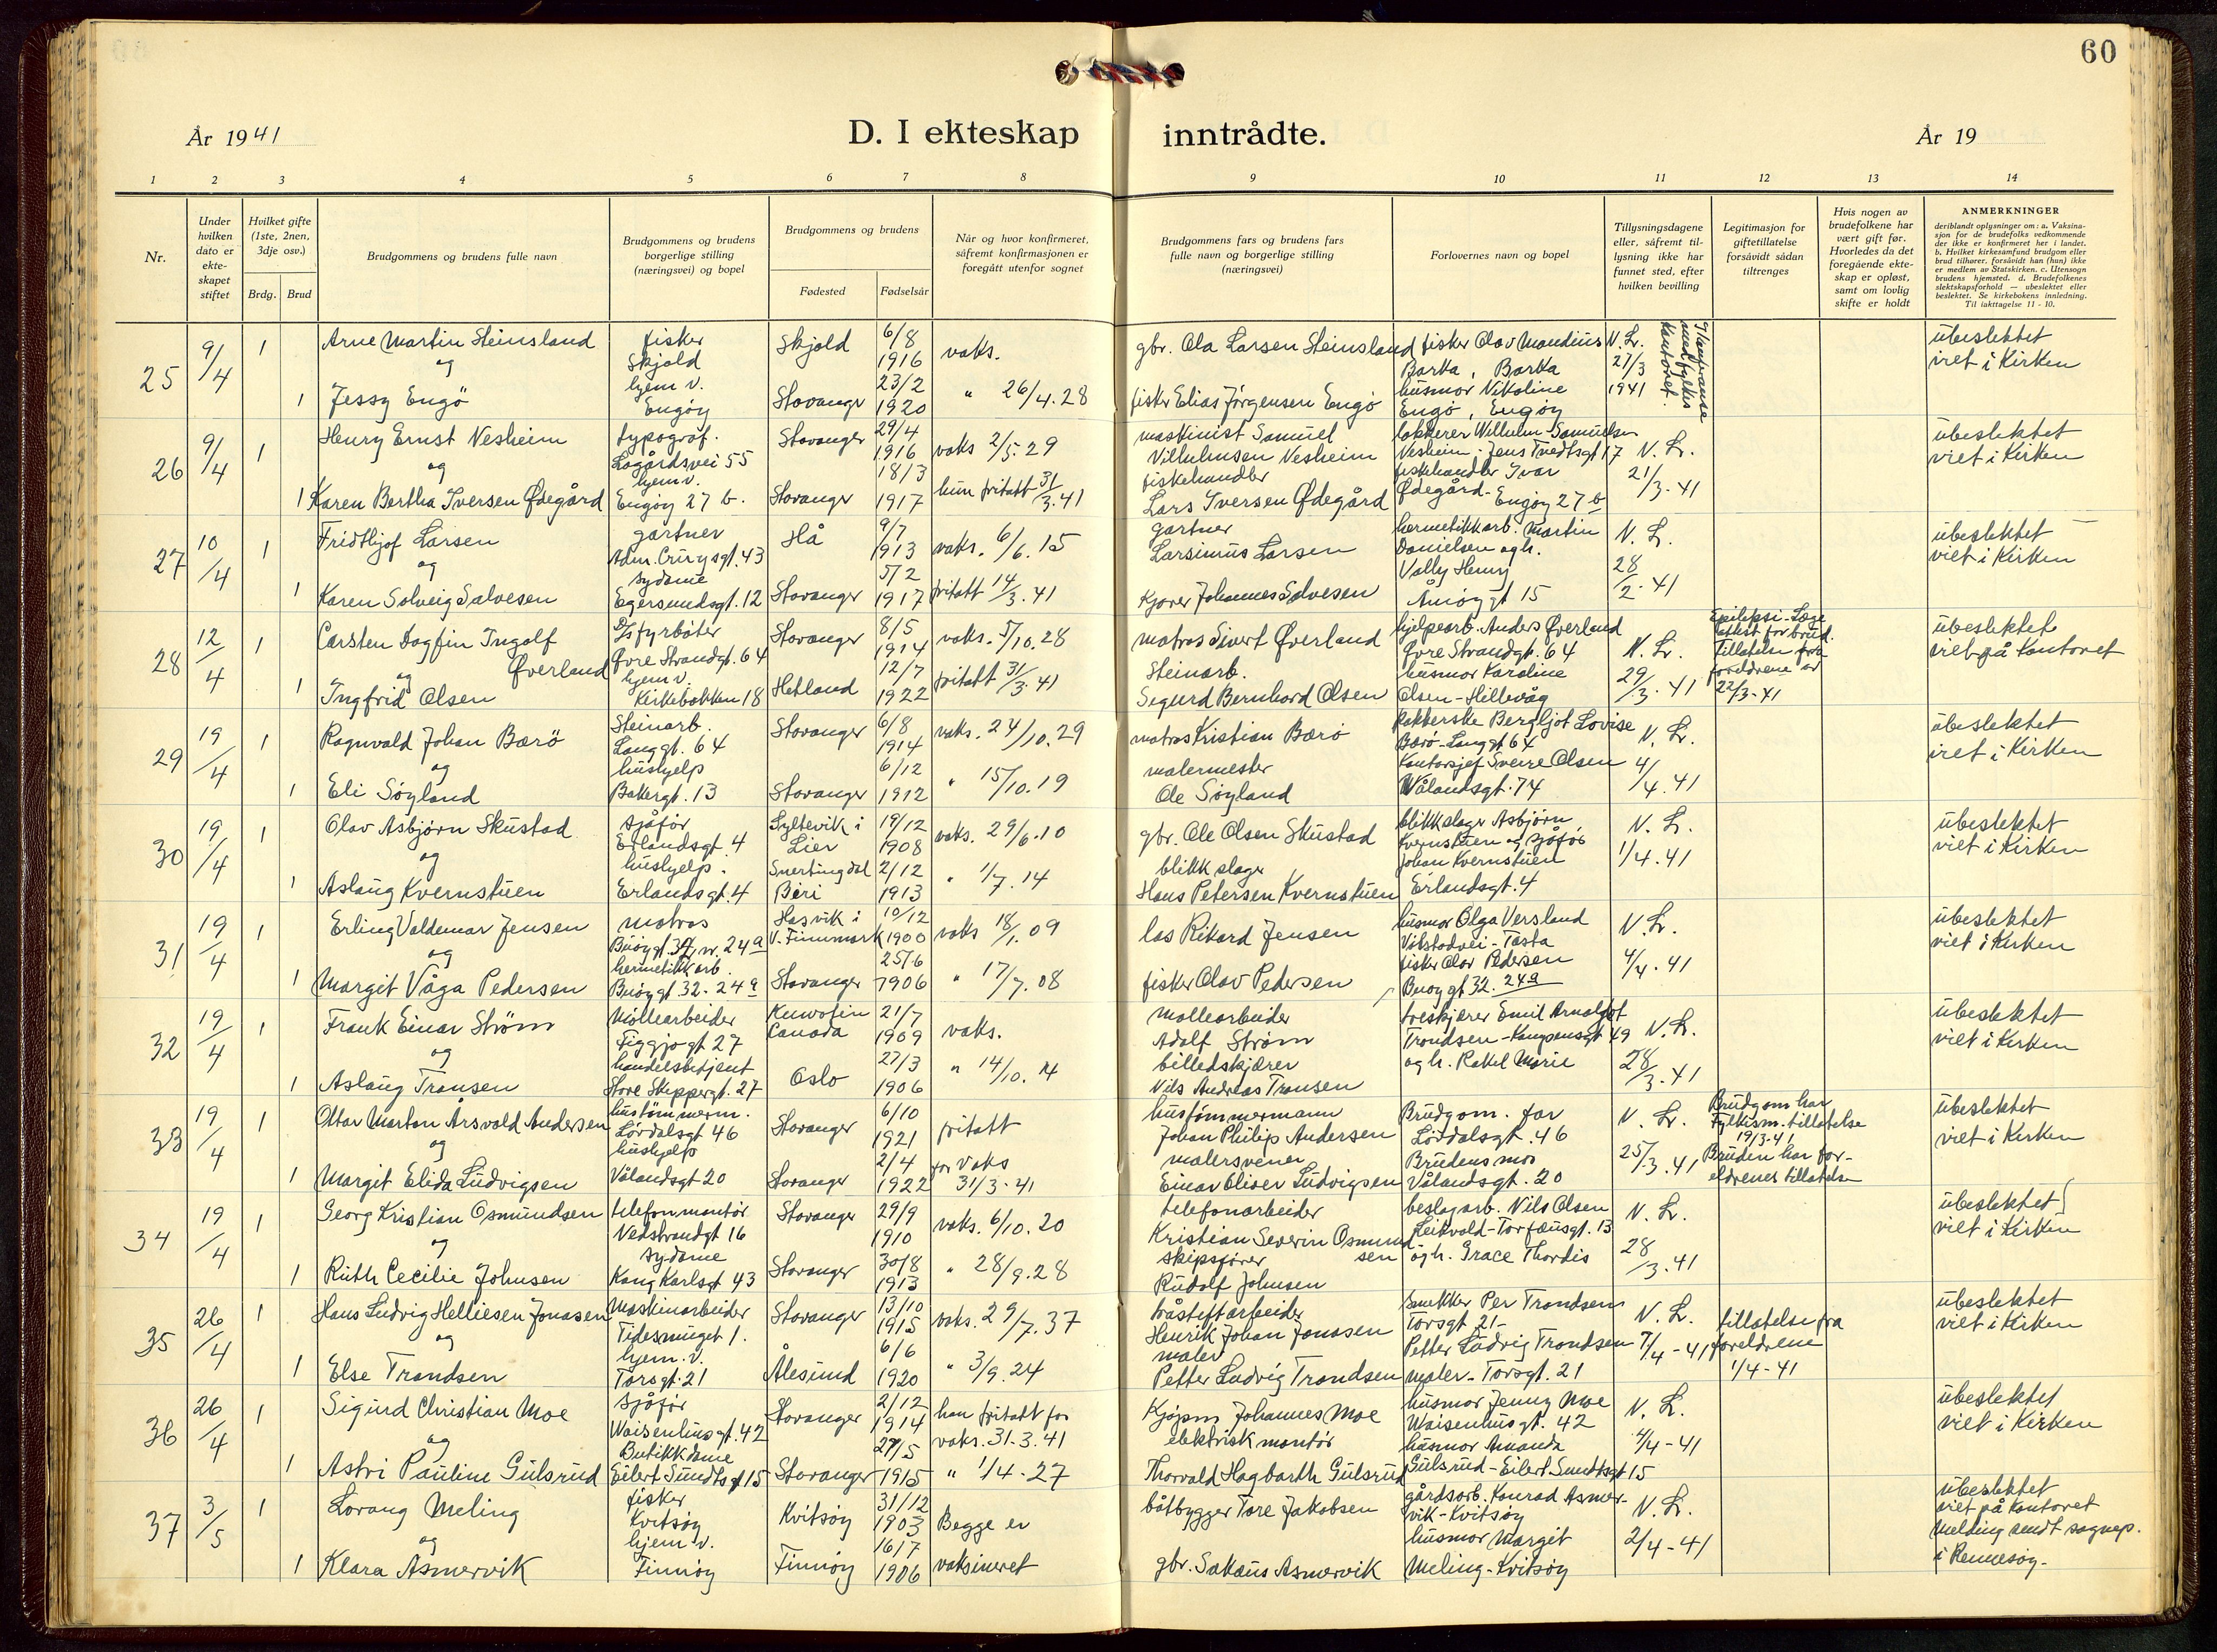 60
År 1941
D. I ekteskap inntrådte.
År 19
1 2 3 4 5 6 7 8 9 10 11 12 13 14
Nr.
Under hvilken dato er ekteskapet stiftet
Hvilket gifte (1ste, 2nen, 3dje osv.)
Brdg. Brud
Brudgommens og brudens fulle navn
Brudgommens og brudens borgerlige stilling (næringsvei) og bopel
Brudgommens og brudens
Fødested Fødselsår
Når og hvor konfirmeret, såfremt konfirmasjonen er foregått utenfor sognet
Brudgommens fars og brudens fars fulle navn og borgerlige stilling (næringsvei)
Forlovernes navn og bopel
Tillysningsdagene eller, såfremt tillysning ikke har funnet sted, efter hvilken bevilling
Legitimasjon for giftetillatelse forsåvidt sådan tiltrenges
Hvis nogen av brudefolkene har vært gift før. Hvorledes da det foregående ekteskap er opløst, samt om lovlig skifte er holdt
ANMERKNINGER
deriblandt oplysninger om: a. Vaksinasjon for de brudefolks vedkommende der ikke er konfirmeret her i landet. b. Hvilket kirkesamfund brudgom eller brud tilhører, forsåvidt han (hun) ikke er medlem av Statskirken. c. Utensogn brudens hjemsted. d. Brudefolkenes slektskapsforhold — ubeslektet eller beslektet. Se kirkebokens innledning. Til iakttagelse 11 - 10.
25 9/4 1 Arne Martin Steinsland fisker Skjold Skjold 6/8 1916 vaks. gbr. Ola Larsen Steinsland fisker Olav Mandius Barka, Barka N. L. 27/3 1941 ubeslektet viet i Kirken
og
1 Jessy Engö hjem v. Engöy Stavanger 23/2 1920 " 26/4.28 fisker Elias Jörgensen Engö husmor Nikoline Engö, Engöy
26 9/4 1 Henry Ernst Nesheim typograf. Lagårdsvei 55 Stavanger 29/4 1916 vaks 2/5.29 maskinist Samuel Vilhelmsen Nesheim lakkerer Wilhelm Samuelsen Nesheim - Jens Tvedtsgt 17 N. L. 21/3.41 ubeslektet viet i Kirken
og
1 Karen Bertha Iversen Ødegård hjem v. Engöy 27 b. Stavanger 18/3 1917 hun fritatt 31/3.41 fiskehandler Lars Iversen Ødegård fiskehandler Ivar Ødegård - Engöy 27 b
27 10/4 1 Fridthjof Larsen gartner Adm. Cruysgt. 43 Hå 9/7 1913 vaks. 6/6.15 gartner Larsinius Larsen hermetikkarb. Martin Danielsen og h. N. L. 28/2.41 ubeslektet viet i Kirken
og
1 Karen Solveig Salvesen sydame Egersundsgt. 12 Stavanger 5/2 1917 fritatt 14/3.41 Kjører Johannes Salvesen Vally Henry Amöygt 15
28 12/4 1 Carsten Dagfin Ingolf Øverland D/s fyrböter Øvre Strandgt. 64 Stavanger 8/5 1914 vaks. 5/10.28 matros Sivert Øverland hjelpearb. Anders Øverland Øvre Strandgt. 64 N. L. 29/3.41 Epilepsi-Læge attest for brud. Tillatelse fra foreldrene av 22/3-41 ubeslektet viet på kontoret
og
1 Ingfrid Olsen hjem v. Kirkebakken 18 Hetland 12/7 1922 fritatt 31/3.41 Steinarb. Sigurd Bernhard Olsen husmor Karoline Olsen - Hillevåg
29 19/4 1 Ragnvald Johan Barö Steinarb. Langgt. 64 Stavanger 6/8 1914 vaks. 24/10.29 matros Kristian Barö Pakkerske Bergljot Lovise Barö - Langgt 64 N. L. 4/4.41 ubeslektet viet i Kirken
og
1 Eli Söyland hushjelp Bakergt. 13 Stavanger 6/12 1912 " 15/10.19 malermester Ole Söyland Kontorsjef Sverre Olsen Wålandsgt. 74
30 19/4 1 Olav Asbjørn Skustad sjåför Erlandsgt. 4 Lier 19/12 1908 vaks. 29/6.10 gbr. Ole Olsen Skustad blikkslager Asbjørn Kvernstuen og sjåför N. L. 1/4.41 ubeslektet viet i Kirken
og
1 Aslaug Kvernstuen hushjelp. Erlandsgt. 4 Snertingdal Biri 2/12 1913 " 1/7.14 blikkslager Hans Petersen Kvernstuen Johan Kvernstuen Erlandsgt. 4
31 19/4 1 Erling Valdemar Jensen matros Hasvik i V. Finnmark 10/12 1900 vaks 18/1.09 los Rikard Jensen husmor Olga Versland Tasta N. L. 4/4.41 ubeslektet viet i Kirken
og
1 Margit Våga Pedersen hermetikkarb. Buöygt 32. 24a Stavanger 25/6 1906 " 17/7.08 fisker Olav Pedersen fisker Olav Pedersen Buöygt 32. 24a
32 19/4 1 Frank Einar Ström Möllearbeider Figgjogt 27 Canada 21/7 1909 vaks. möllearbeider Adolf Ström treskjærer Emil Arnoldst Trondsen - Kampensgt 49 N. L. 28/3.41 ubeslektet viet i Kirken
og
1 Aslaug Transen handelsbetjent Store Skippergt. 27 Oslo 27/3 1906 " 14/10.14 billedskjærer Nils Andreas Transen og h. Rakel Marie
33 19/4 1 Ottar Morton Årsvold Andersen hustömmerm. Lövdalsgt 46 Stavanger 6/10 1921 fritatt hustömmermann Johan Philip Andersen Brudgom. far Lövdalsgt. 46 N. L. 25/3.41 Brudgom har Fylkesm. tillatelse 19/3.41 Bruden har foreldrenes tillatelse ubeslektet viet i Kirken
og
1 Margit Elida Ludvigsen hushjelp Vålandsgt 20 Stavanger 2/4 1922 for vaks 31/3-41 malersvenn Einar Oliver Ludvigsen Brudens mor Vålandsgt. 20
34 19/4 1 Georg Kristian Osmundsen telefonmontör Nedstrandgt 16 Stavanger 29/9 1910 vaks. 6/10.20 telefonarbeider Kristian Severin Osmundsen beslagarb. Nils Olsen Leikvold - Torfæusgt. 13 N. L. 28/3.41 ubeslektet viet i Kirken
og
1 Ruth Cecilie Johnsen sydame Kong Karlsgt 43 Stavanger 30/8 1913 " 28/9.28 skipsförer Rudolf Johnsen og h. Grace Thordis
35 26/4 1 Hans Ludvig Helliesen Jonasen Maskinarbeider Tidesmuget 1. Stavanger 13/10 1915 vaks. 29/7.37 Henrik Johan Jonasen Snekker Per Trondsen Torsgt 21- N. L. 7/4-41 tillatelse fra foreldrene 1/4-41 ubeslektet viet i Kirken
og
1 Else Trondsen hjem. v. Torsgt. 21 Ålesund 6/6 1920 " 3/9.24 maler Petter Ludvig Trondsen Petter Ludvig Trondsen maler - Torsgt. 21
36 26/4 1 Sigurd Christian Moe sjåför Waisenhusgt. 42 Stavanger 2/12 1914 han fritatt for vaks. 31-3.41 Kjøpm Johannes Moe husmor Jenny Moe Waisenhusgt. 42 N. L. 4/4-41 ubeslektet viet i Kirken
og
1 Astri Pauline Gulsrud Butikkdame Eilert Sundtsgt 15 Stavanger 27/5 1915 " 1/4.27 elektrisk montör Thorvald Hagbarth Gulsrud husmor Amanda Gulsrud - Eilert Sundtsgt 15
37 3/5 1 Lorang Meling fisker Kvitsöy Kvitsöy 31/12 1903 Begge er vaksineret båtbygger Tore Jakobsen gårdsarb. Konrad Asmervik - Kvitsöy N. L. 2/4-41 ubeslektet viet på kontoret Melding sendt sognep. i Rennesöy.
og
1 Klara Asmervik hjem v. Finnöy Finnöy 16/7 1906 gbr. Sakaus Asmervik husmor Margit Meling - Kvitsöy